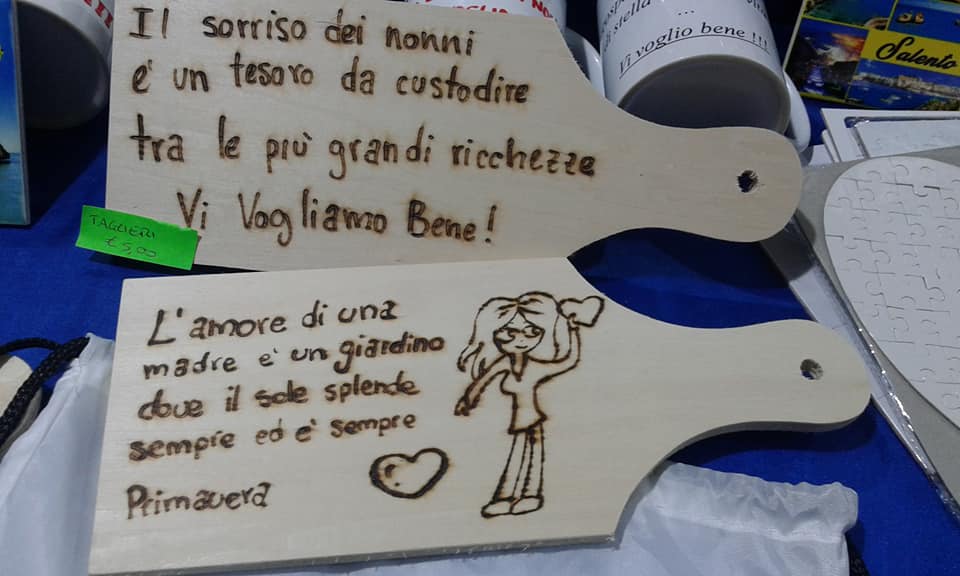 Il sorriso dei nonni
e' un tesoro da custodire
tra le più grandi ricchezze
Vi Vogliamo Bene!
TAGLIERI
€ 5,00
L'amore di una
madre e' un giardino
dove il sole splende
sempre ed e' sempre
Primavera
di stella
...
Vi voglio bene !!!
Salento